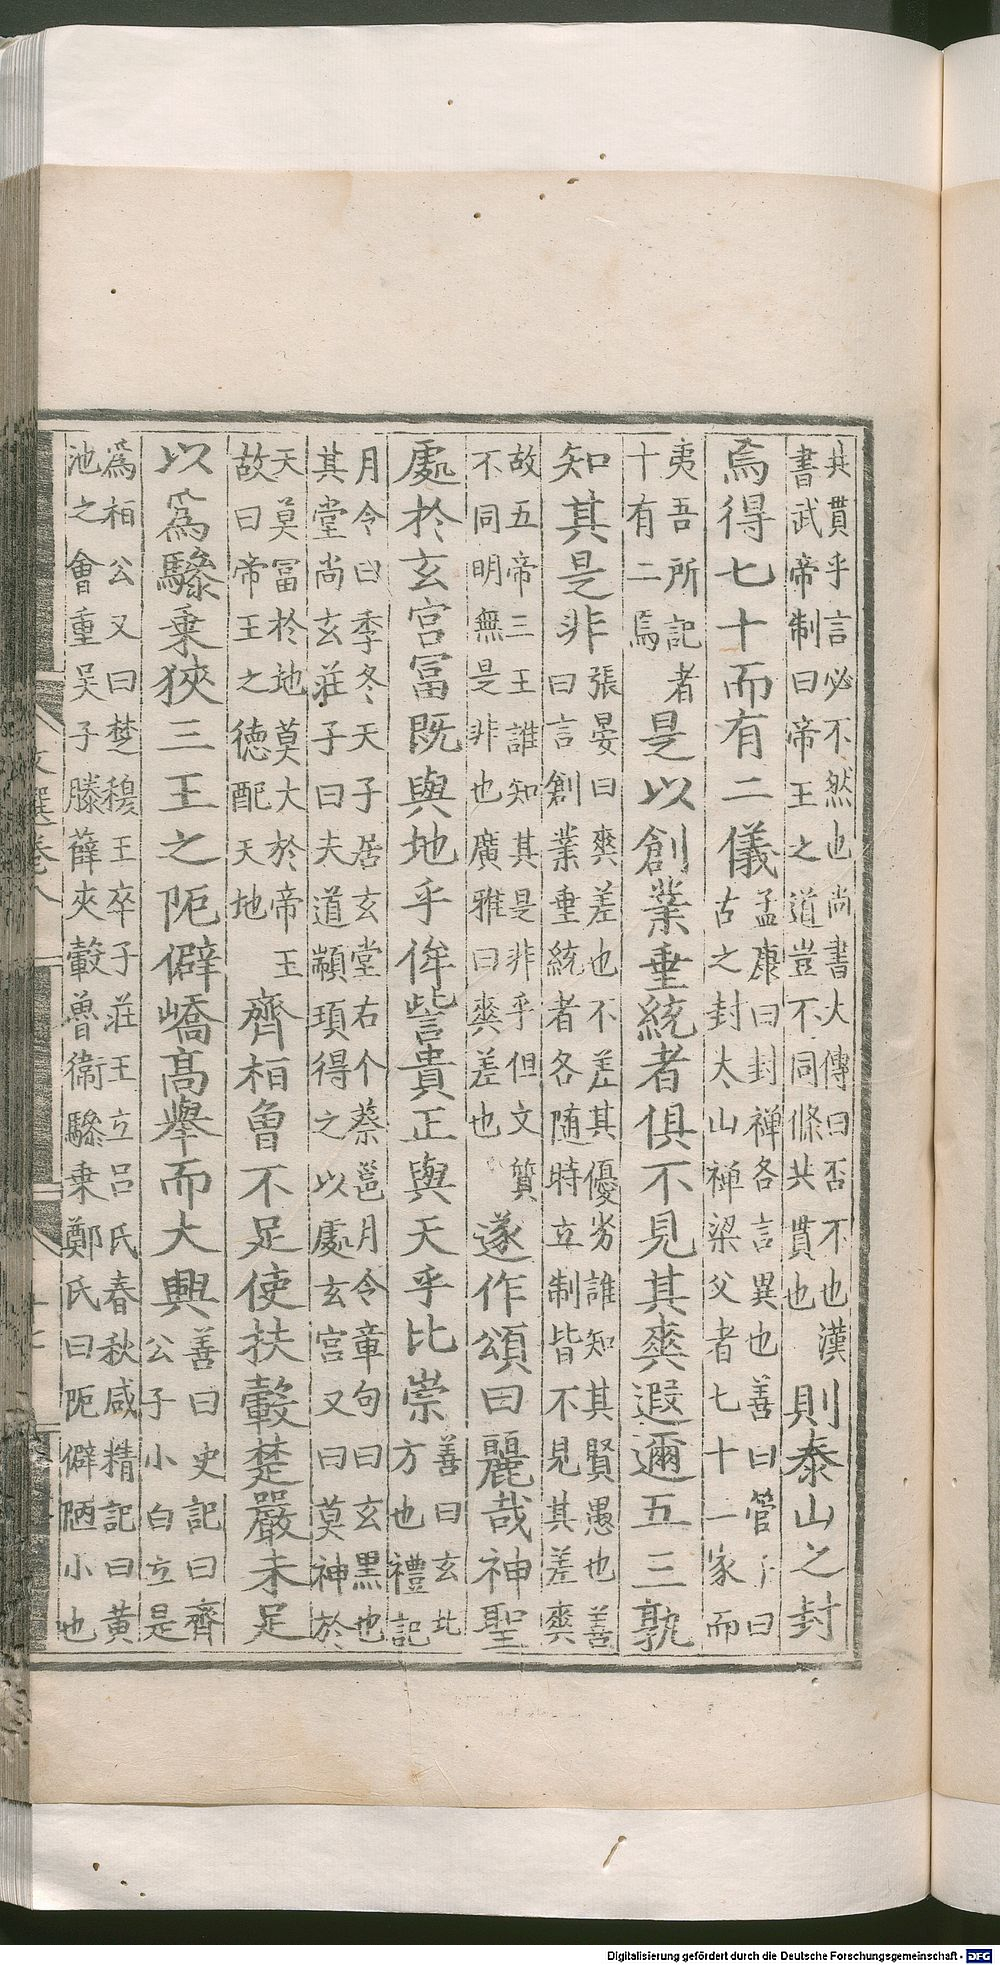 共貫乎言必不然也尚書大傳曰否不也漢
書武帝制曰帝王之道豈不同條共貫也
則泰山之封
焉得七十而有二儀
孟康曰封禅各言異也善曰管子曰
古之封太山禅梁父者七十二家而
夷吾所記者
十有二焉
是以創業垂統者俱不見其爽遐邇五三孰
知其是非
張晏曰爽差也不差其優劣誰知其賢愚也善
曰言創業垂統者各随時立制皆不見其差爽
故五帝三王誰知其是非乎但文質
不同明無是非也廣雅曰爽差也
遂作頌曰麗哉神聖
處於玄宮冨既與地乎侔訾貴正與天乎比崇
善曰玄北
方也禮記
月令曰季冬天子居玄堂右个蔡邕月令章句曰玄黒也
其堂尚玄莊子曰夫道顓頊得之以處玄宮又曰莫神於
天莫冨於地莫大於帝王
故曰帝王之德配天地
齊栢魯不足使扶轂楚嚴未足
以為驂乗狹三王之阨僻嶠髙舉而大興
善曰史記曰齊
公子小白立是
為相公又曰楚穆王卒子莊王立吕氏春秋咸精記曰黄
池之會重吴子滕薛夾轂魯衛驂乗鄭氏曰阨僻陋小也
文選卷八
十七
Digitalisierung gefördert durch die Deutsche Forschungsgemeinschaft - DFG